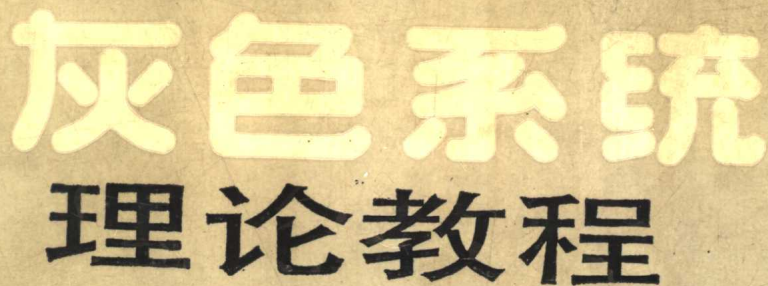 灰色系统
理论教程